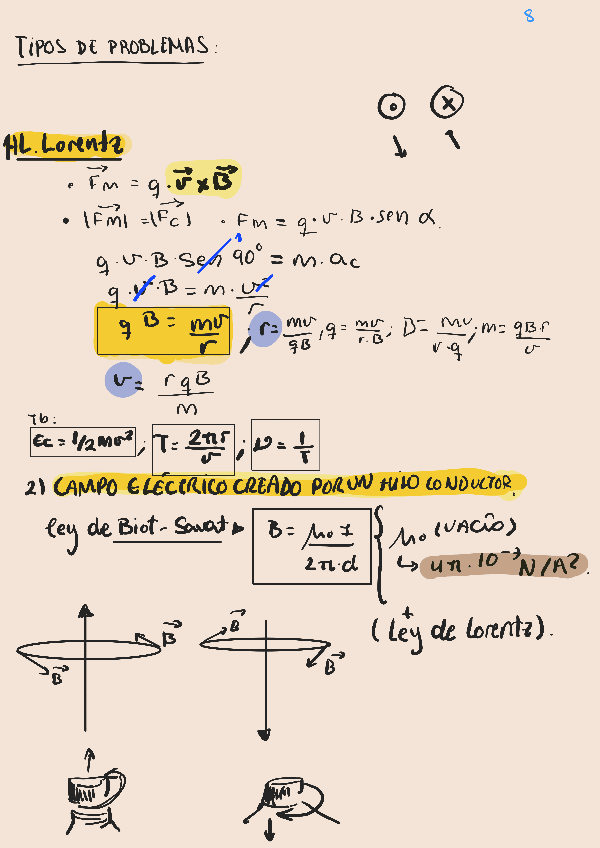 8
TIPOS DE PROBLEMAS:
1) L. Lorentz
• F⃗m = q · v⃗ x B⃗
• |F⃗m| = |F⃗c| · Fm = q · v · B · sen α
q · v · B · Sen 90° = m · ac
q · v · B = m · v²/r
q B = mv/r ; r = mv/qB, q = mv/r·B; B = mv/r·q; m = qBr/v
v = rqB/m
Tb:
Ec = 1/2 mv² ; T = 2πr/v ; ν = 1/T
2) CAMPO ELÉCTRICO CREADO POR UN HILO CONDUCTOR.
ley de Biot-Savat ▸ B = μ₀ I / 2π·d { μ₀ (VACÍO)
↳ 4π · 10⁻⁷ N/A².
+
(Ley de Lorentz).
B⃗ B⃗ B⃗ B⃗